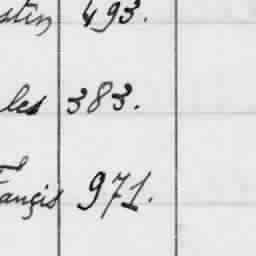 stin 493.
les 383.
ançis 971.